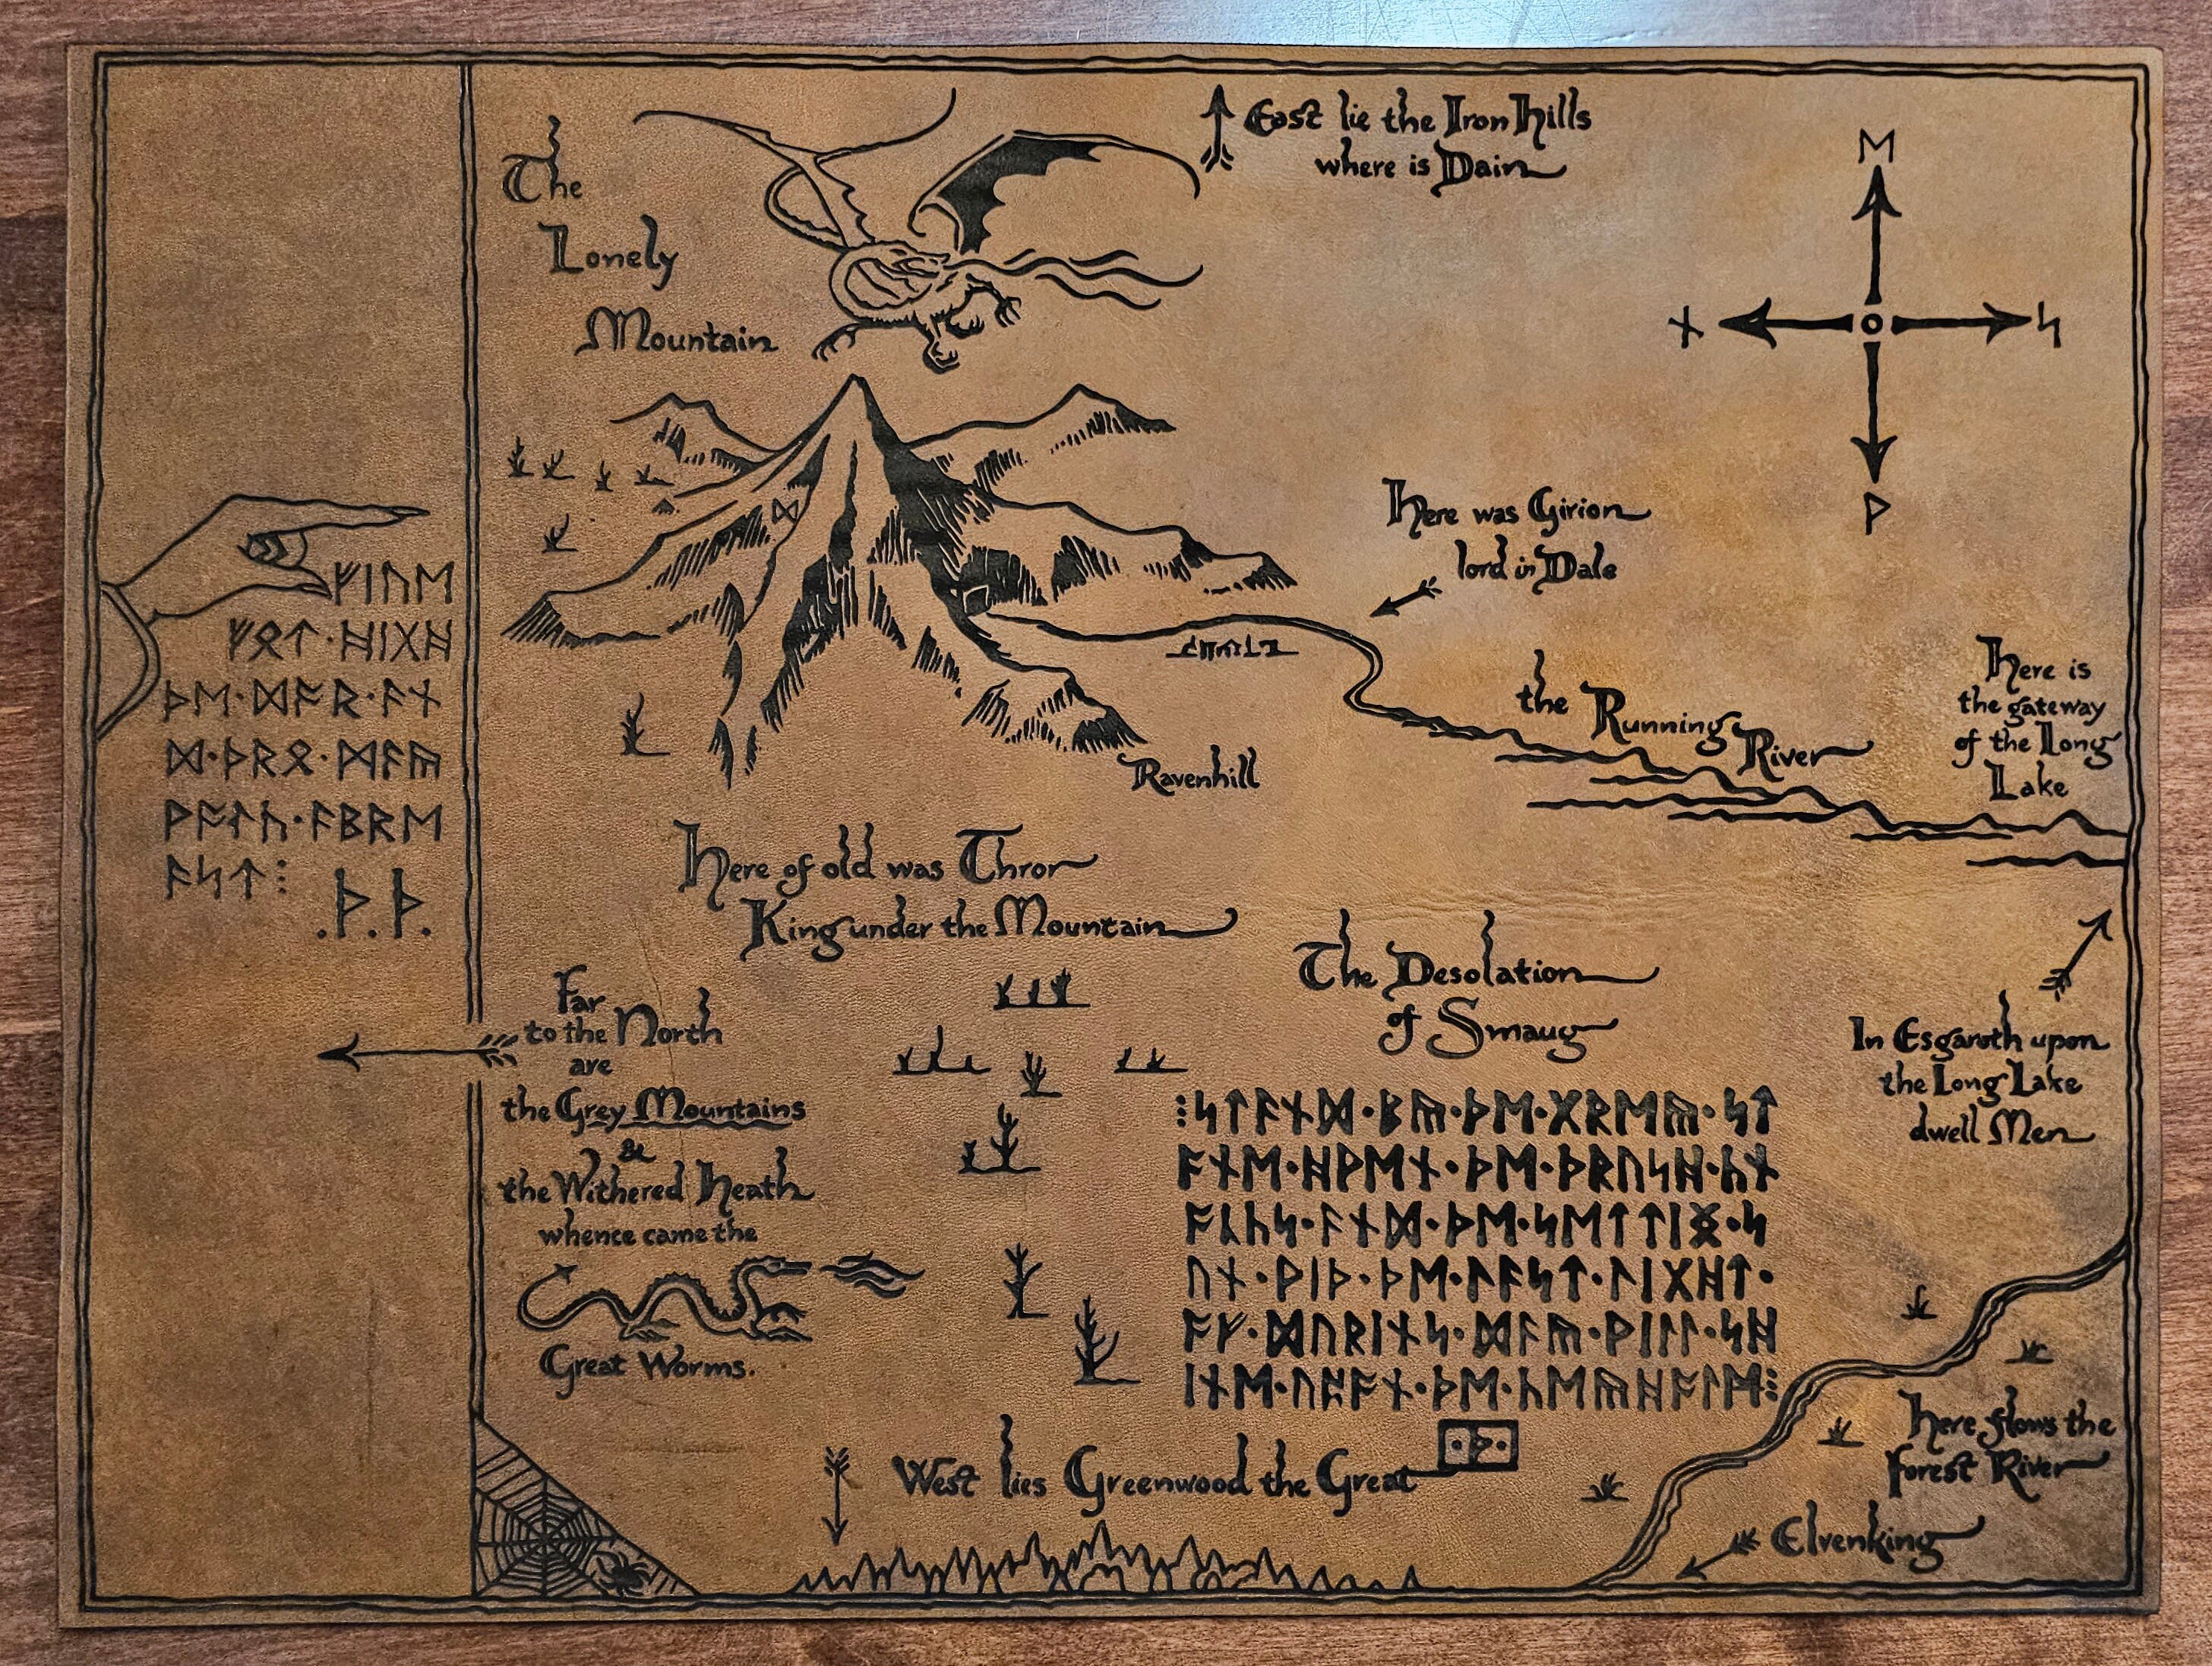 The
Lonely
Mountain
East lie the Iron Hills
where is Dain
ᛖ
ᚾ ᛋ
ᚹ
ᛞ
Here was Girion
lord in Dale
the Running River
Here is
the gateway
of the Long
Lake
Ravenhill
ᚠᛁᚢᛖ
ᚠᛟᛏ᛫ᚻᛁᚷᚻ
ᚦᛖ᛫ᛞᚩᚱ᛫ᚫᚾ
ᛞ᛫ᚦᚱᛟ᛫ᛗᚫᚣ
ᚹᚫᛚᚳ᛫ᚫᛒᚱᛖ
ᚫᛋᛏ⁝
.ᚦ.ᚦ.
Here of old was Thror
King under the Mountain
The Desolation
of Smaug
Far
to the North
are
the Grey Mountains
&
the Withered Heath
whence came the
Great Worms.
⁝ᛋᛏᚫᚾᛞ᛫ᛒᚣ᛫ᚦᛖ᛫ᚷᚱᛖᚣ᛫ᛋᛏ
ᚩᚾᛖ᛫ᚻᚹᛖᚾ᛫ᚦᛖ᛫ᚦᚱᚢᛋᚻ᛫ᚳᚾ
ᚩᚳᚳᛋ᛫ᚫᚾᛞ᛫ᚦᛖ᛫ᛋᛖᛏᛏᛁᛝ᛫ᛋ
ᚢᚾ᛫ᚹᛁᚦ᛫ᚦᛖ᛫ᛚᚫᛋᛏ᛫ᛚᛁᚷᚻᛏ᛫
ᚩᚠ᛫ᛞᚢᚱᛁᚾᛋ᛫ᛞᚫᚣ᛫ᚹᛁᛚᛚ᛫ᛋᚻ
ᛁᚾᛖ᛫ᚢᛈᚩᚾ᛫ᚦᛖ᛫ᚳᛖᚣᚻᚩᛚᛖ⁝
In Esgaroth upon
the Long Lake
dwell Men
West lies Greenwood the Great
Here flows the
Forest River
Elvenking